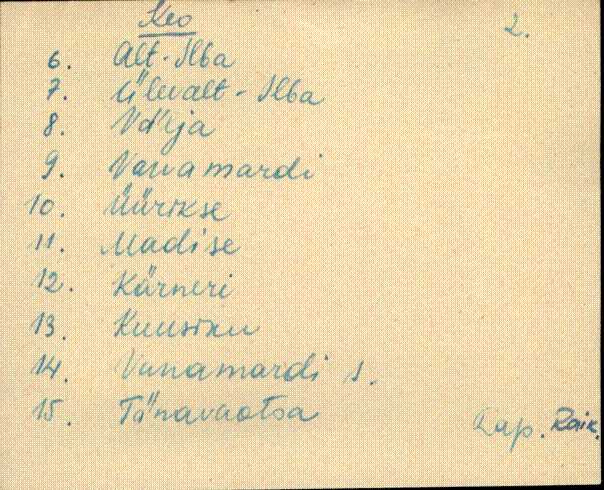 Keo 2.
6. Alt-Ilba
7. Ülevalt-Ilba
8. Välja
9. Vanamardi
10. Üürikse
11. Madise
12. Kärneri
13. Kuusiku
14. Vanamardi s.
15. Tänavaotsa
Rap. Raik.